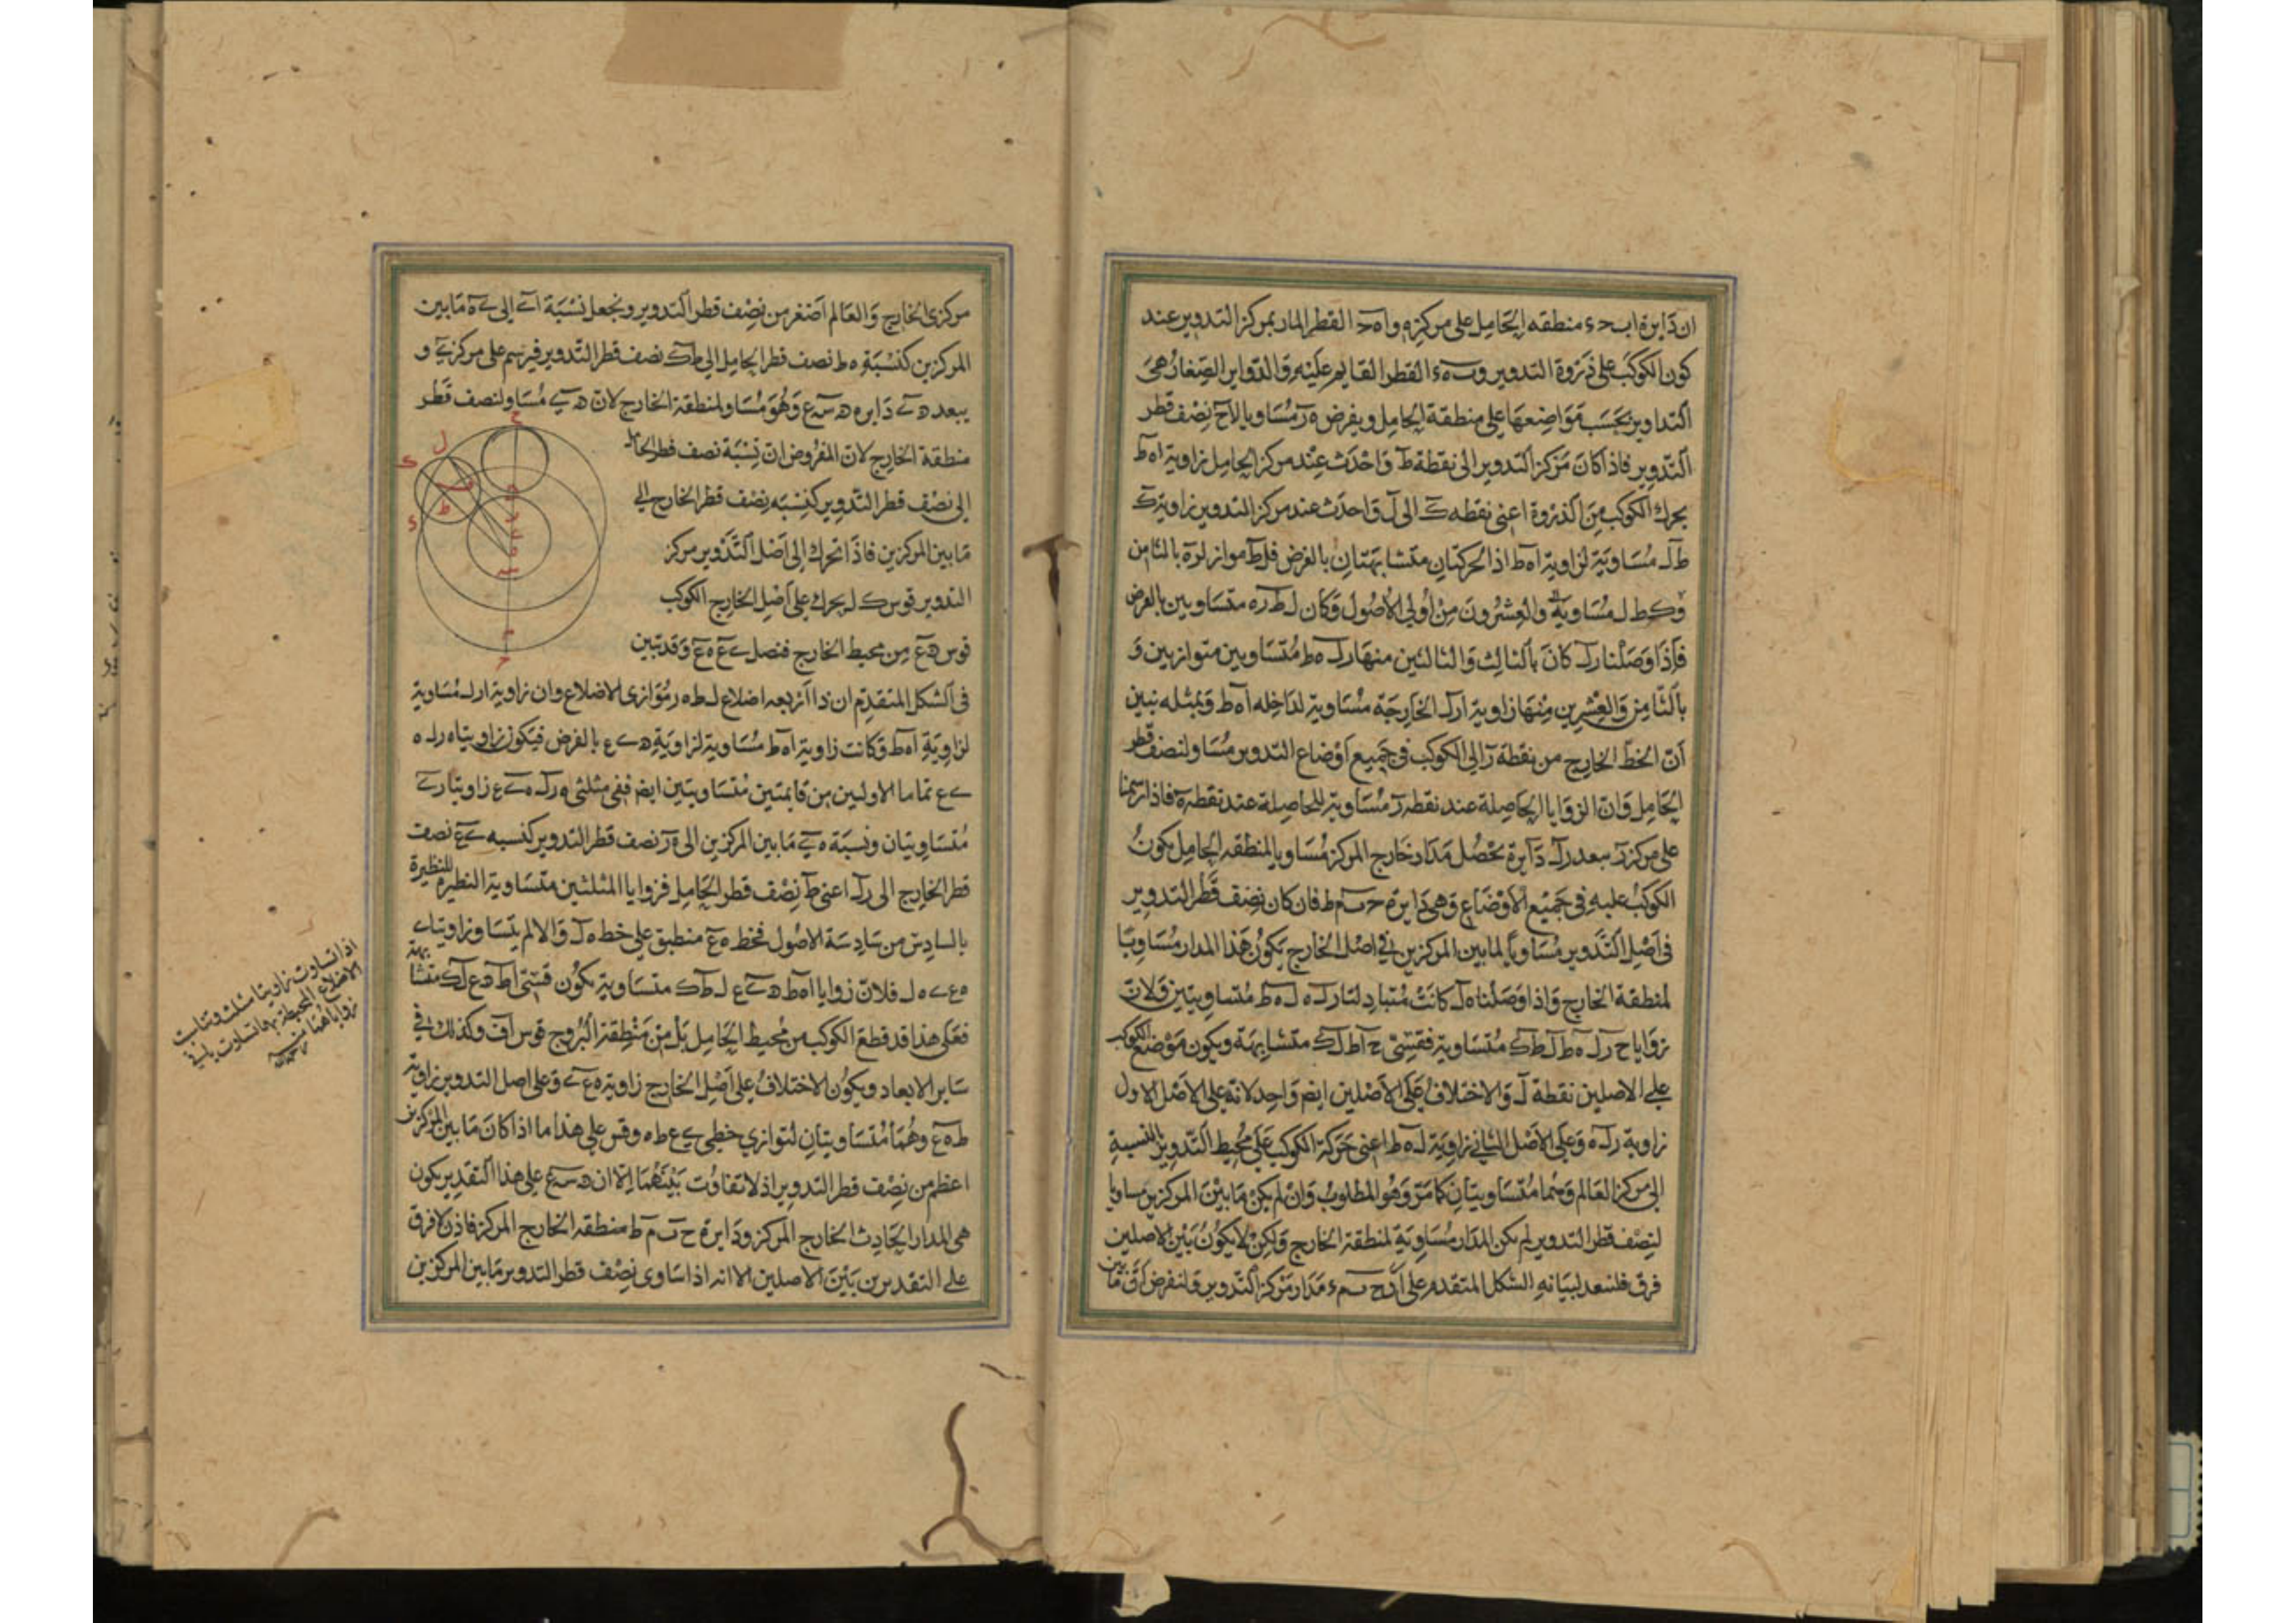 ان دايرة ابحء منطقه الحامل على مركزه واهح القطر المار بمركز التدوير عند
كون الكوكب على ذروة التدوير وبهء القطر القايم عليه والدواير الصغار هى
التداوير بحسب مواضعها على منطقة الحامل ويفرض هر مساويا لاح نصف قطر
التدوير فاذا كان مركز التدوير الى نقطة ط واحدث عند مركز الحامل زاوية اهط
بحرك الكوكب من الذروة اعنى نقطه ك الى ل واحدث عند مركز التدوير زاوية ك
ط ل مساوية لزاوية اهط اذ الحركتان متشابهتان بالفرض فلط مواز لره بالثامن
وكطل مساوية والعشرون من اولى الاصول وكان لط ره متساويين بالفرض
فاذا وصلنا رل كان بالثالث والثالثين منها رل هط متساويين متوازيين و
بالثامن والعشرين منها زاوية ارل الخارجة مساوية لداخله اهط وبمثله نبين
ان الخط الخارج من نقطة ر الى الكوكب فى جميع اوضاع التدوير مساو لنصف قطر
الحامل وان الزوايا الحاصلة عند نقطه ر مساوية للحاصلة عند نقطه ه فاذا رسمنا
على مركز ر ببعد رل دايرة يحصل مدار خارج المركز مساويا لمنطقه الحامل يكون
الكوكب عليه فى جميع الاوضاع وهى دايرة ح ب م ط فان كان نصف قطر التدوير
فى اصل التدوير مساويا لما بين المركزين فى اصل الخارج يكون هذا المدار مساويا
لمنطقة الخارج واذا وصلنا هل كانت متبادلتا رله لهط متساويتين ولان
زوايا ح رل هط لطك متساوية فقسى ح اط لك متشابهة ويكون موضع الكوكب
على الاصلين نقطة ل والاختلاف على الاصلين ايضا واحد لانه على الاصل الاول
زاوية رله وعلى الاصل الثانى زاوية لهط اعنى حركة الكوكب على محيط التدوير بالنسبة
الى مركز العالم وهما متساويتان كما مر وهو المطلوب وان لم يكن ما بين المركزين مساويا
لنصف قطر التدوير لم يكن المدار مساوية لمنطقة الخارج ولكن لا يكون بين الاصلين
فرق فلنعد لبيانه الشكل المتقدم على ان ح ب م ء مدار مركز التدوير ولنفرض ان ما بين
مركزى الخارج والعالم اصغر من نصف قطر التدوير ونجعل نسبة اى الى ىه ما بين
المركزين كنسبة هط نصف قطر الحامل الى طك نصف قطر التدوير فيرسم على مركز ى و
ببعد هى دايره ه س ع وهو مساو لمنطقة الخارج لان هى مساو لنصف قطر
منطقة الخارج لان المفروض ان نسبة نصف قطر الحامل
الى نصف قطر التدوير كنسبه نصف قطر الخارج الى
ما بين المركزين فاذا تحرك الى اصل التدوير مركز
التدوير قوس ك ل يحرك على اصل الخارج الكوكب
قوس هع من محيط الخارج فنصل ىع هع وقد تبين
فى الشكل المتقدم ان ذا اربعه اضلاع لطهر متوازى الاضلاع وان زاوية ارل مساوية
لزاوية اهط وكانت زاوية اهط مساوية لزاوية هىع بالفرض فيكون زاويتا هرل ه
ىع تماما الاولين من قايمتين متساويتين ايضا ففى مثلثى هرل هىع زاويتا رى
متساويتان ونسبة هى ما بين المركزين الى هر نصف قطر التدوير كنسبه ىع نصف
قطر الخارج الى رل اعنى ط نصف قطر الحامل فزوايا المثلثين متساوية النظيره للنظيرة
بالسادس من سادسة الاصول فخط هع منطبق على خط هل والا لم يتساو زاويتا ى
هع ى هل فلان زوايا اهط هىع لطك متساوية يكون قسى اط هع لك متشابهة
فعلى هذا قد قطع الكوكب من محيط الحامل بل من منطقة البروج قوس اف وكذلك فى
ساير الابعاد ويكون الاختلاف على اصل الخارج زاوية هعى وعلى اصل التدوير زاوية
طهع وهما متساويتان لتوازى خطى ىع طه وقس على هذا ما اذا كان ما بين المركزين
اعظم من نصف قطر التدوير اذ لا تفاوت بينهما الا ان ه س ع على هذا التقدير يكون
هى المدار الحادث الخارج المركز ودايرة ح ب م ط منطقه الخارج المركز فاذن لا فرق
على التقديرين بين الاصلين الا انه اذا ساوى نصف قطر التدوير ما بين المركزين
اذا تساوت زاويتا مثلث وتناسبت
الاضلاع المحيطة بهما تساوت باقى
زواياهما